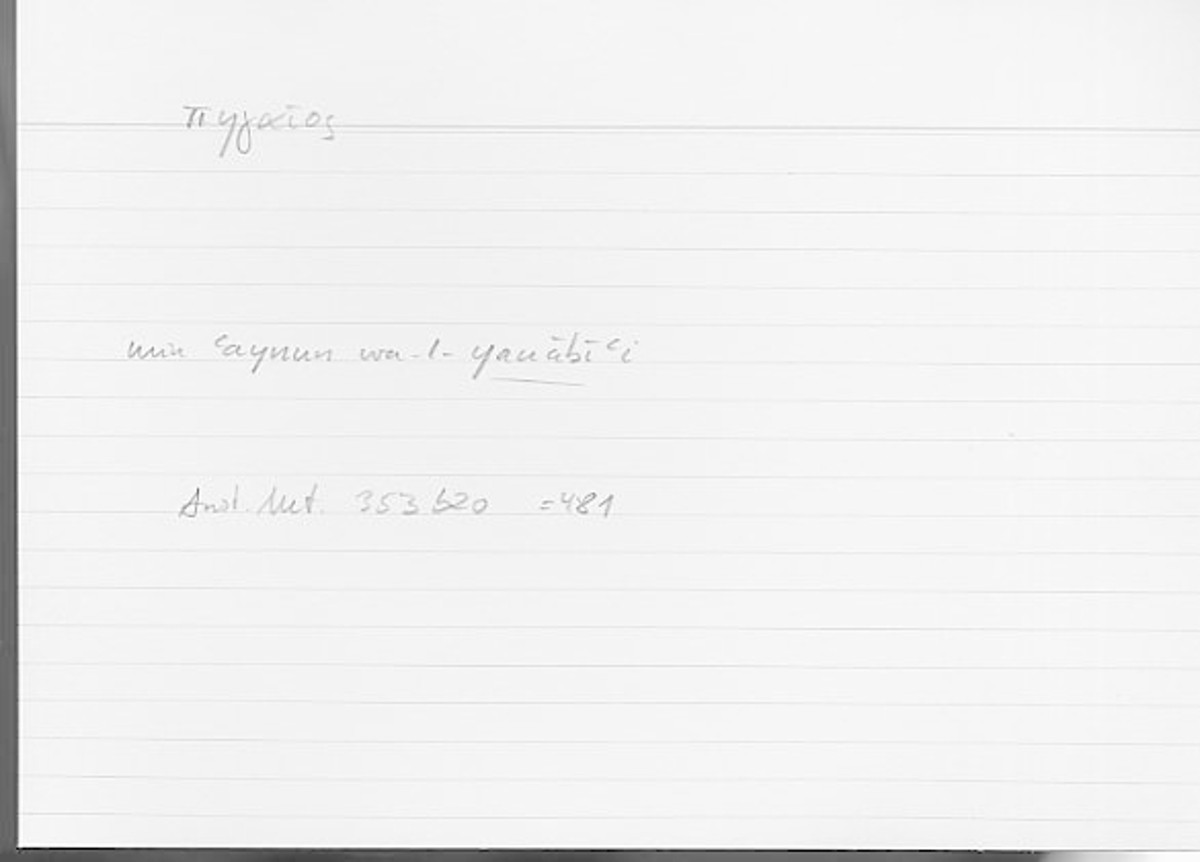 πηγαῖος
min ʿaynun wa-l-yanābīʿi
Arist. Met. 353 b20 =481